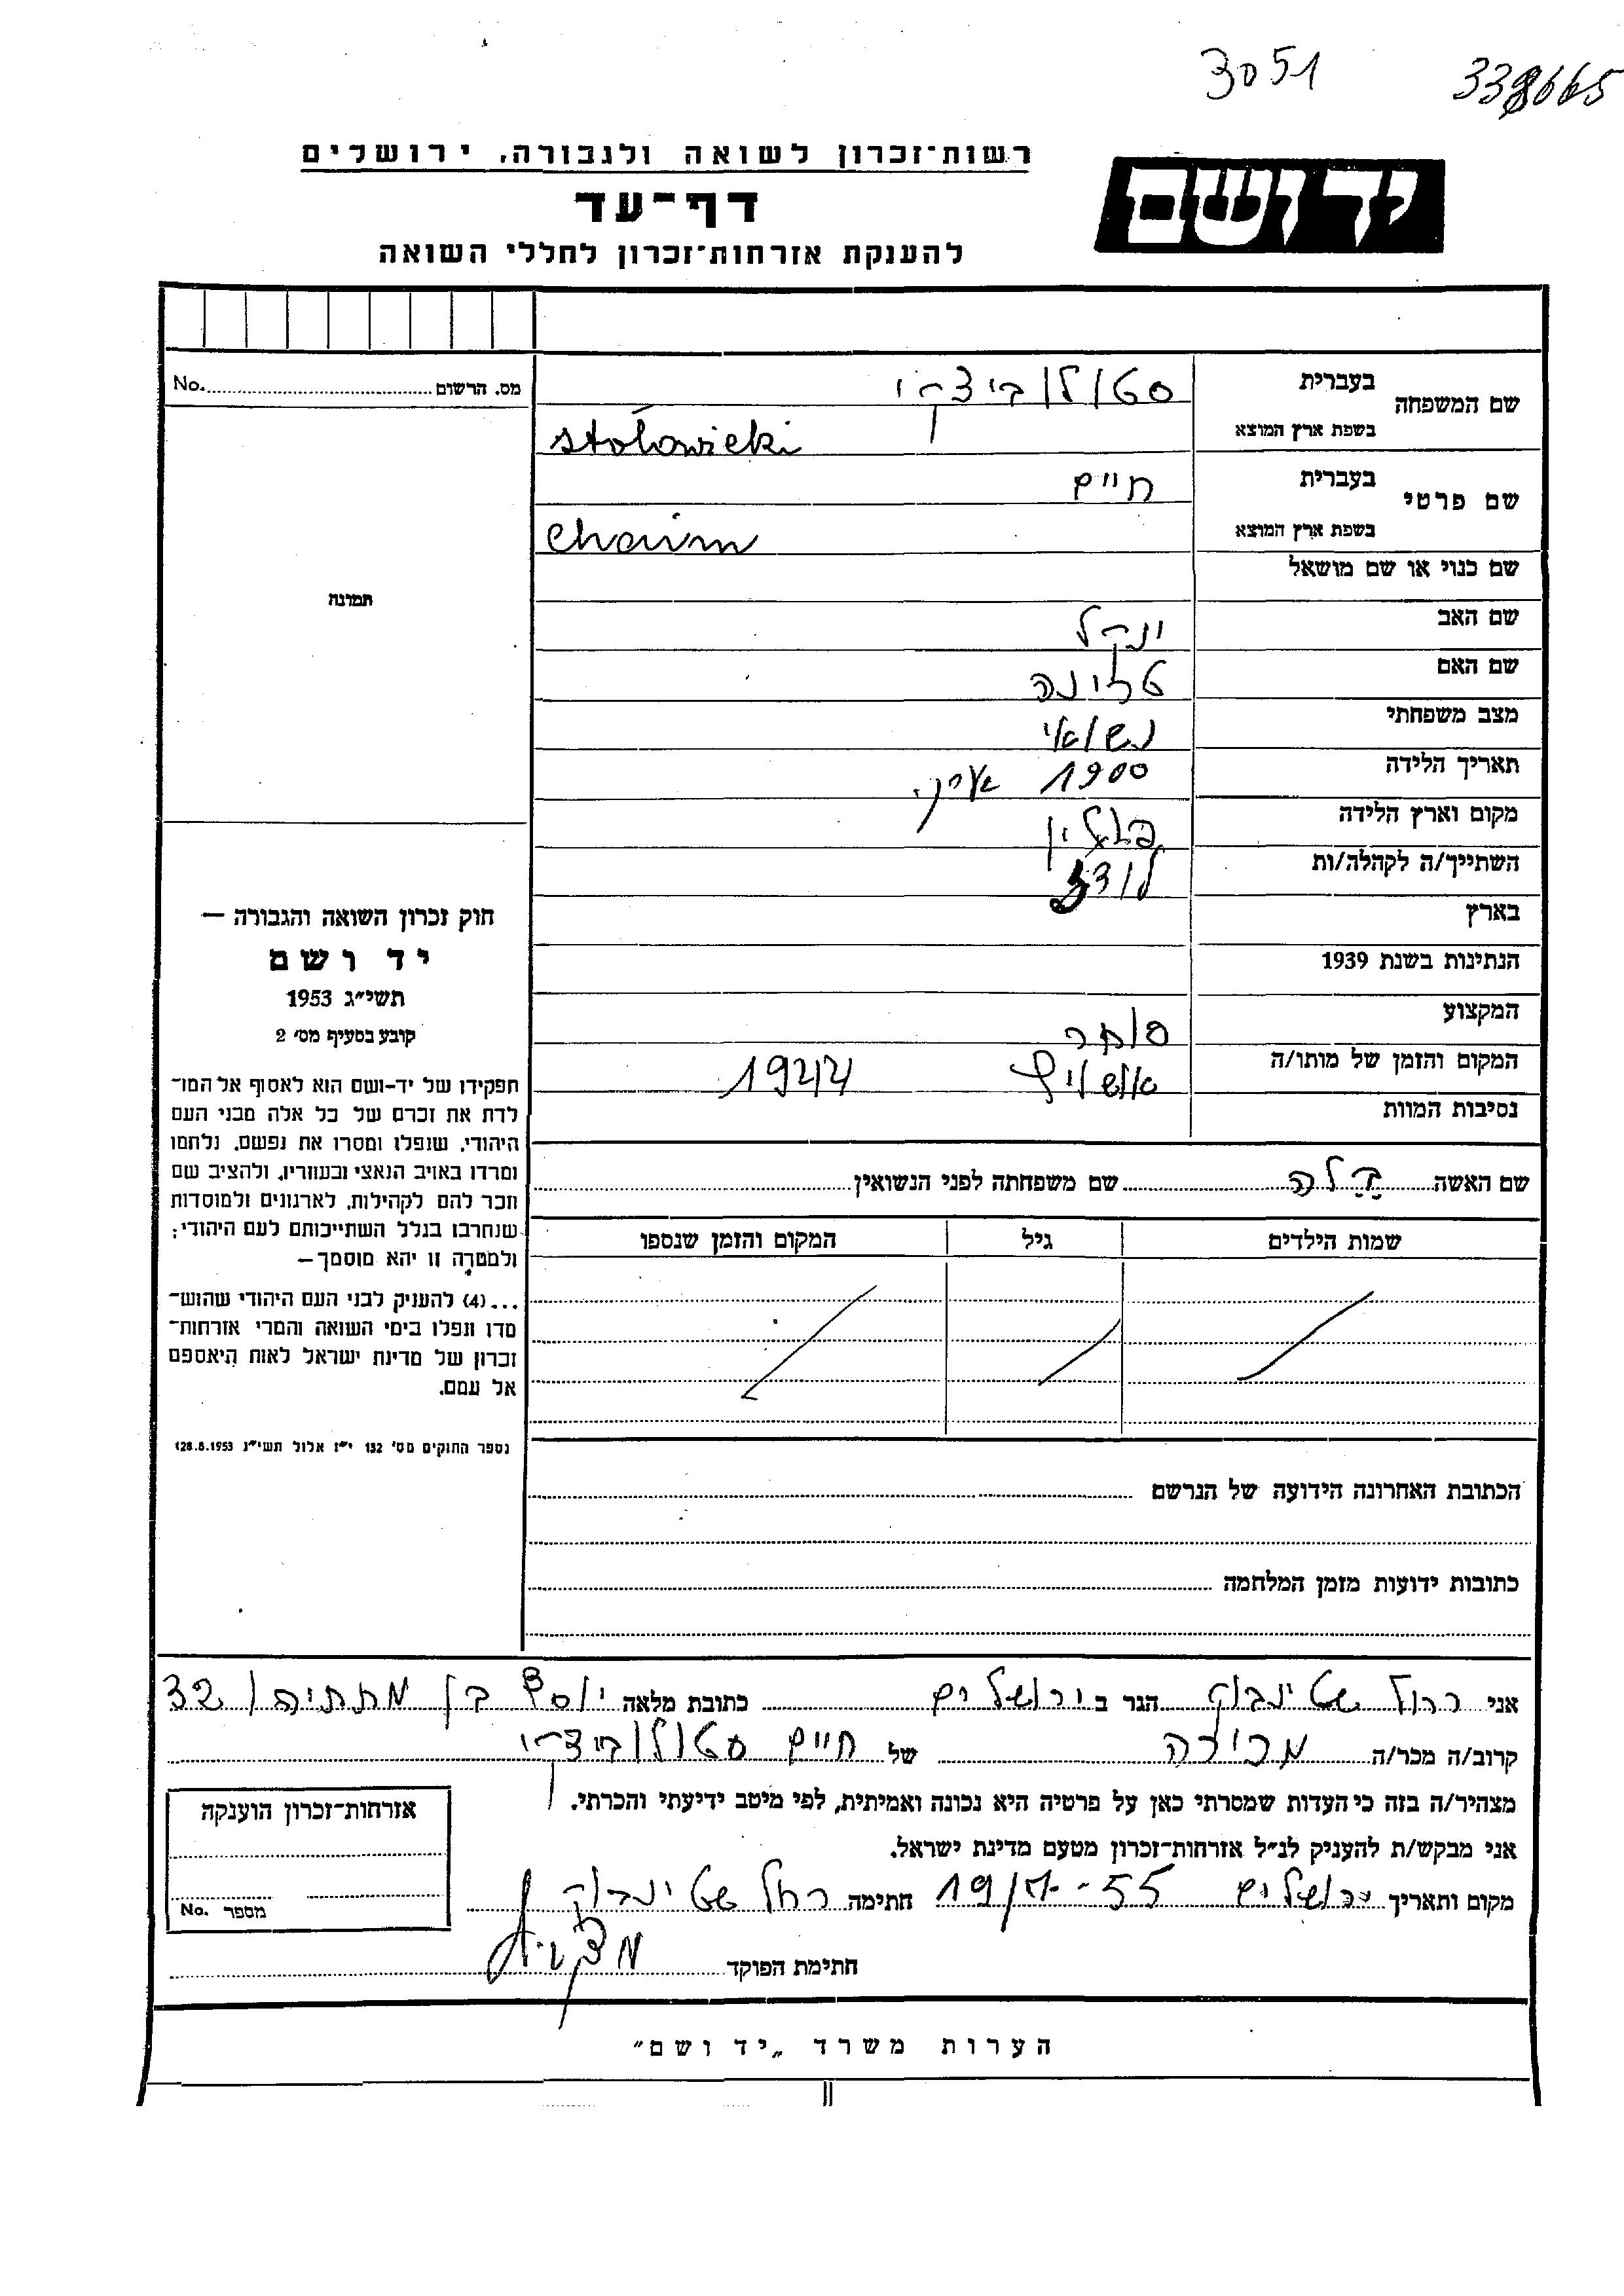 3051
338665
רשות־זכרון לשואה ולגבורה, ירושלים
יד ושם
דף־עד
להענקת אזרחות־זכרון לחללי השואה
מס. הרשום No.
שם המשפחה בעברית סטולוביצקי
בשפת ארץ המוצא Stołowicki
שם פרטי בעברית חיים
בשפת ארץ המוצא Chaim
שם כנוי או שם מושאל
שם האב ינקל
שם האם
מצב משפחתי נשואי
תאריך הלידה 1900
מקום וארץ הלידה פולין
השתייך/ה לקהלה/ות לודז
בארץ
הנתינות בשנת 1939
המקצוע סוחר
המקום והזמן של מותו/ה אושויץ 1944
נסיבות המוות
תמונה
חוק זכרון השואה והגבורה —
יד ושם
תשי״ג 1953
קובע בסעיף מס׳ 2
תפקידו של יד-ושם הוא לאסוף אל המו־
לדת את זכרם של כל אלה מבני העם
היהודי, שנפלו ומסרו את נפשם, נלחמו
ומרדו באויב הנאצי ובעוזריו, ולהציב שם
וזכר להם לקהילות, לארגונים ולמוסדות
שנחרבו בגלל השתייכותם לעם היהודי;
ולמטרה זו יהא מוסמך—
...(4) להעניק לבני העם היהודי שהוש־
מדו ונפלו בימי השואה והמרי אזרחות־
זכרון של מדינת ישראל לאות היאספם
אל עמם.
(ספר החוקים מס׳ 132 י״ז אלול תשי״ג 28.8.1953)
שם האשה בלה שם משפחתה לפני הנשואין
שמות הילדים גיל המקום והזמן שנספו
הכתובת האחרונה הידועה של הנרשם
כתובות ידועות מזמן המלחמה
אני רחל שטינבוק הגר ב ירושלים כתובת מלאה יוסף בן מתתיהו 32
קרוב/ה מכר/ה מכירה של חיים סטולוביצקי
מצהיר/ה בזה כי העדות שמסרתי כאן על פרטיה היא נכונה ואמיתית, לפי מיטב ידיעתי והכרתי.
אני מבקש/ת להעניק לנ״ל אזרחות־זכרון מטעם מדינת ישראל.
מקום ותאריך ירושלים חתימה רחל שטינבוק
חתימת הפוקד
אזרחות־זכרון הוענקה
מספר No.
הערות משרד „יד ושם״